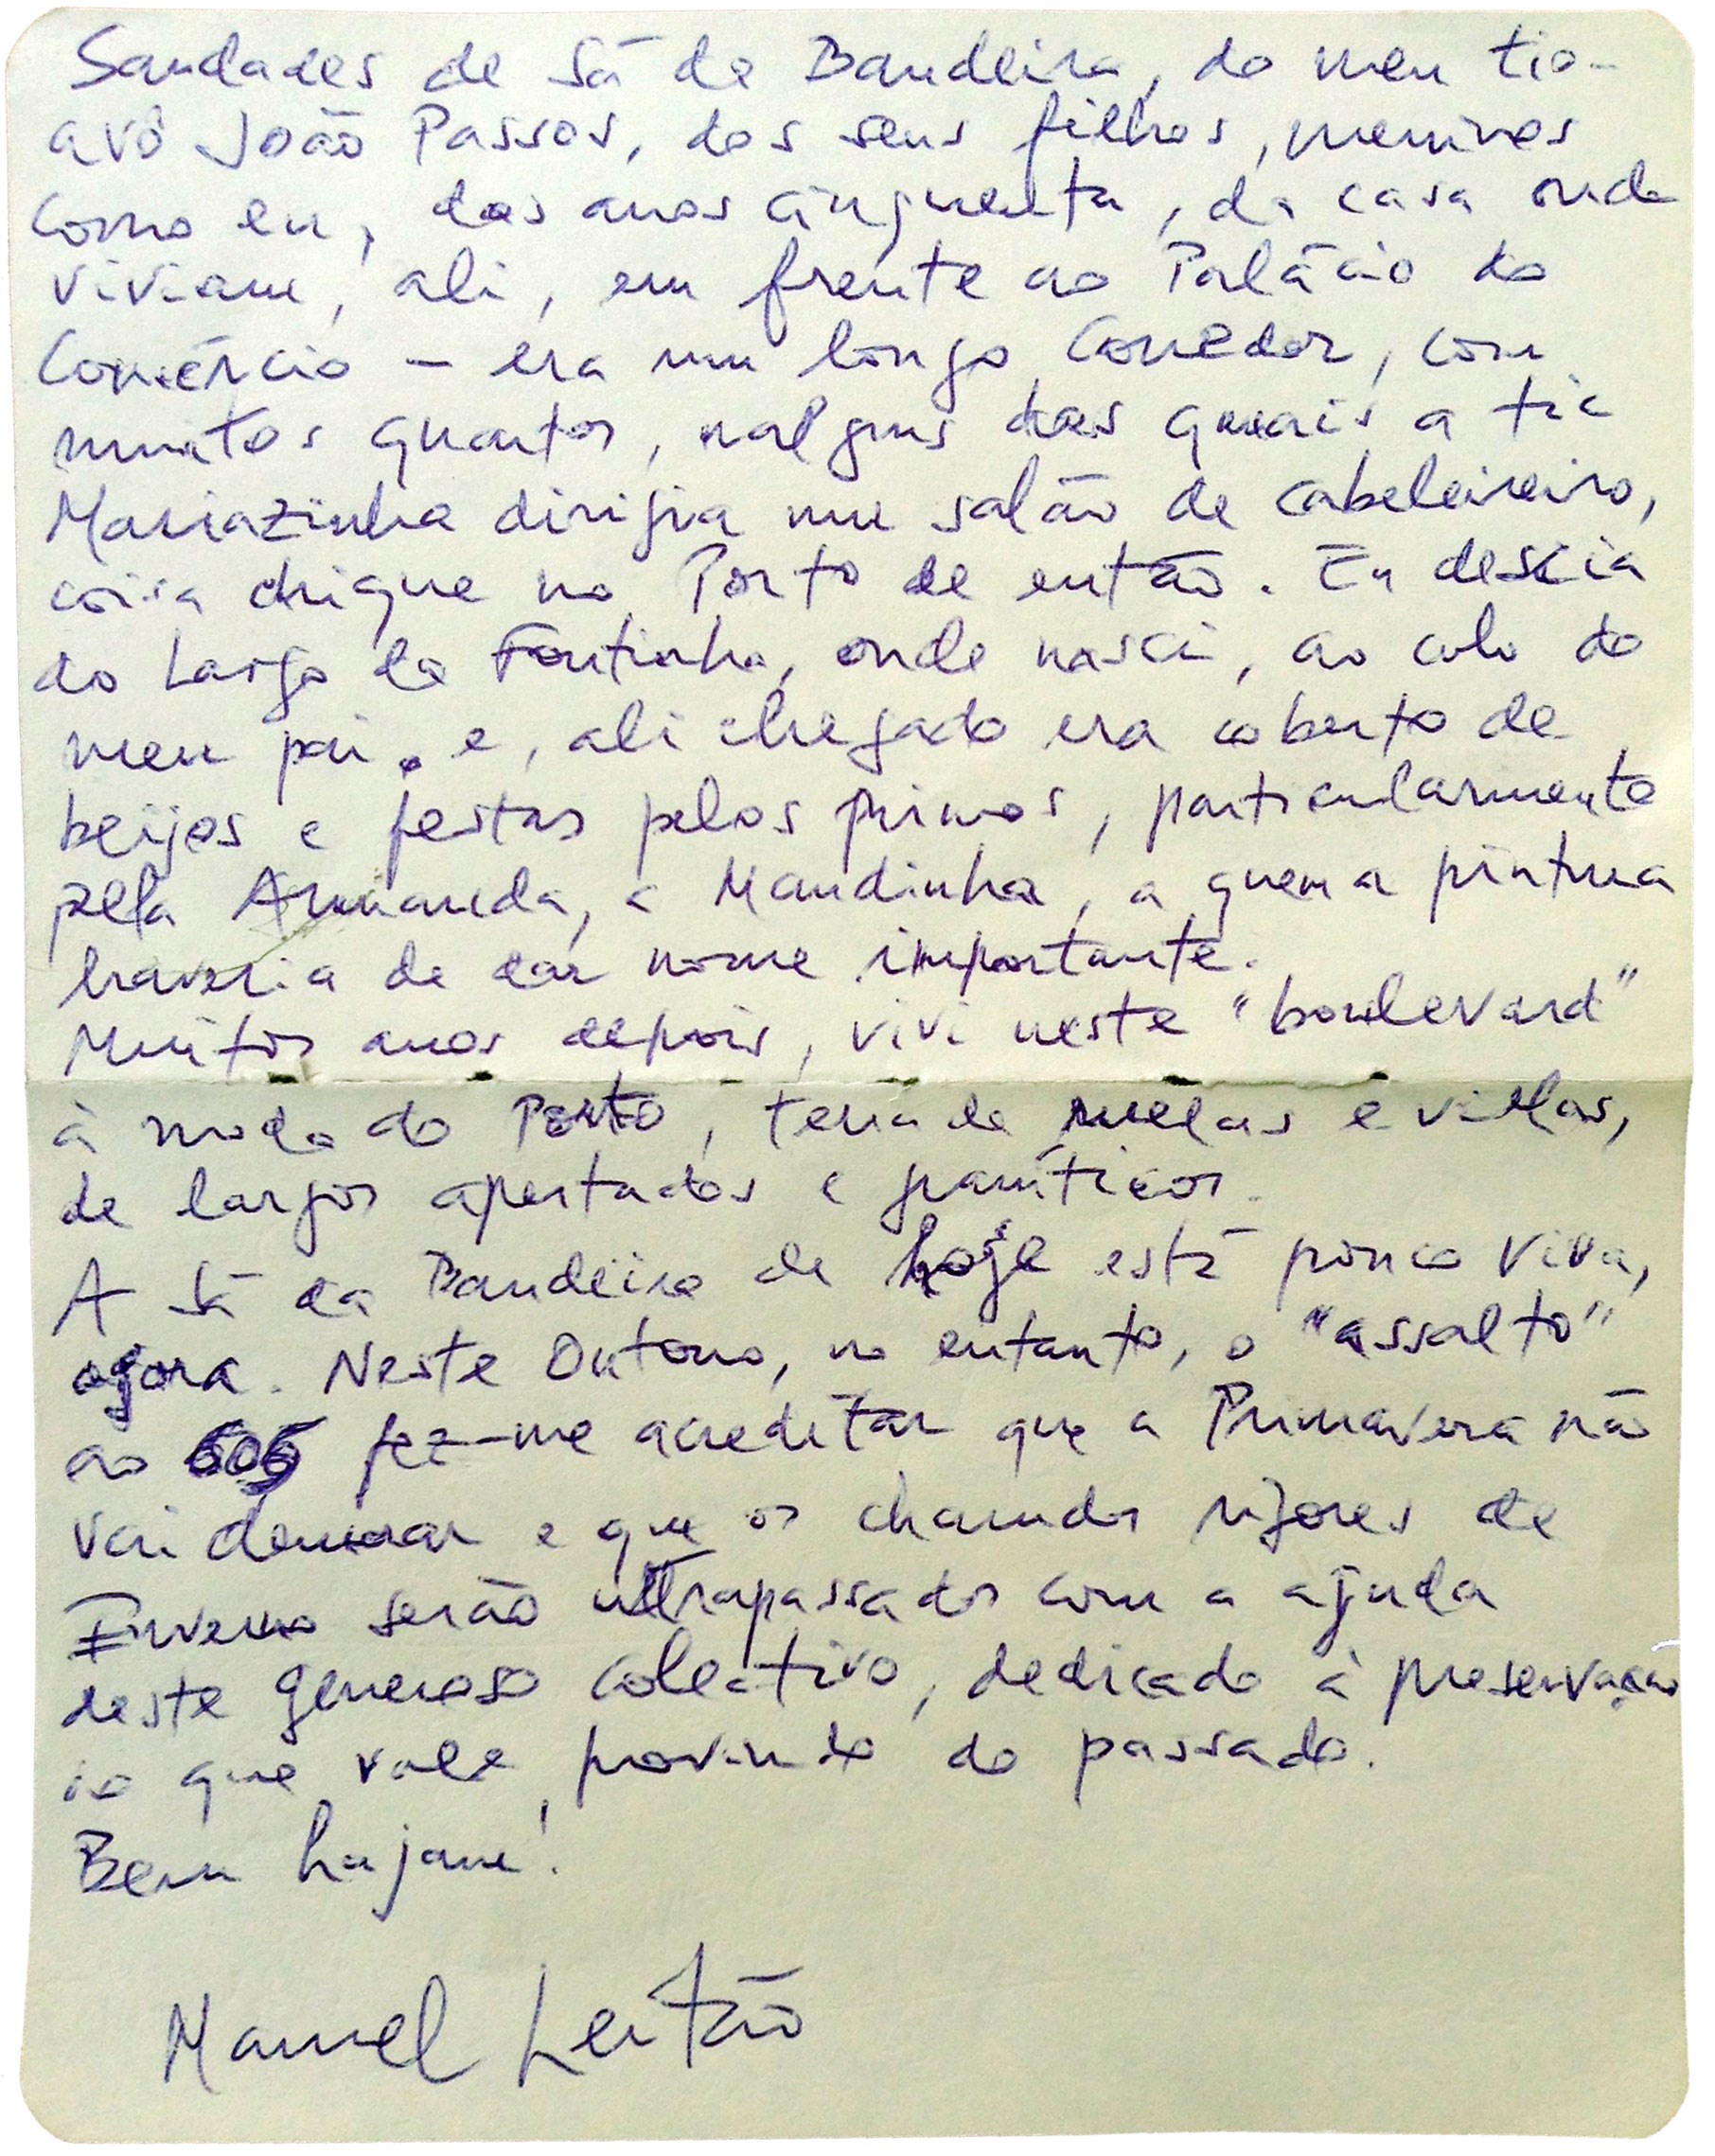 Saudades de Sá da Bandeira, do meu tio-
avô João Passos, dos seus filhos, meninos
como eu, dos anos cinquenta, da casa onde
viviam, ali, em frente ao Palácio do
Comércio – era um longo corredor, com
muitos quartos, nalguns dos quais a tia
Mariazinha dirigia um salão de cabeleireiro,
coisa chique no Porto de então. Eu descia
do Largo da Fontinha, onde nasci, ao colo do
meu pai e, ali chegado era coberto de
beijos e festas pelos primos, particularmente
pela Armanda, a Mandinha, a quem a pintura
haveria de dar nome importante.
Muitos anos depois, vivi neste "boulevard"
à moda do Porto, terra de ruelas e vielas,
de largos apertados e graníticos.
A Sá da Bandeira de hoje está pouco viva,
agora. Neste Outono, no entanto, o "assalto"
ao fez-me acreditar que a Primavera não
vai demorar e que os chamados rigores de
Inverno serão ultrapassados com a ajuda
deste generoso colectivo, dedicado à preservação
do que vale, provindo do passado.
Bem hajam!
Manuel Leitão